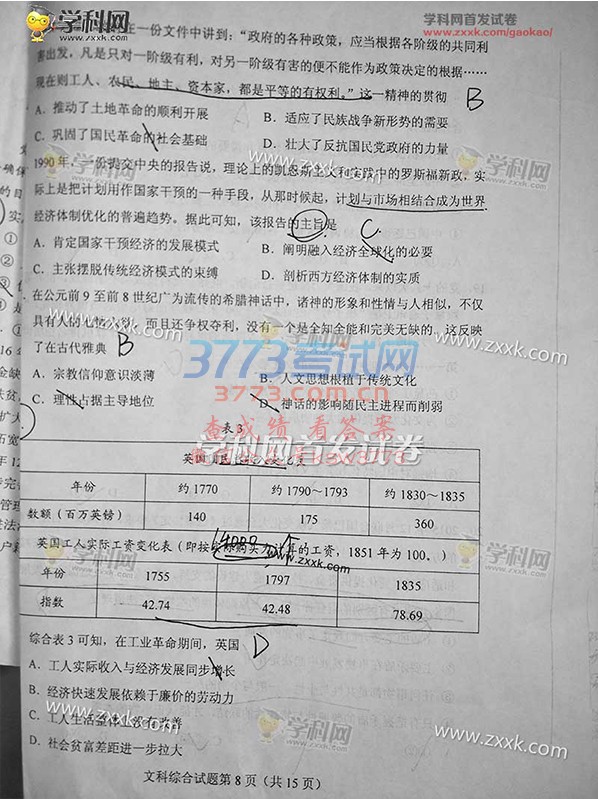 学科网
www.zxxk.com
学科网首发试卷
www.zxxk.com/gaokao/
在一份文件中讲到：“政府的各种政策，应当根据各阶级的共同利
害出发，凡是只对一阶级有利，对另一阶级有害的便不能作为政策决定的根据……
现在则工人、农民、地主、资本家，都是平等的有权利。”这一精神的贯彻 B
A．推动了土地革命的顺利开展
B．适应了民族战争新形势的需要
C．巩固了国民革命的社会基础
D．壮大了反抗国民党政府的力量
1990年，一份提交中央的报告说，理论上的凯恩斯主义和实践中的罗斯福新政，实
际上是把计划用作国家干预的一种手段，从那时候起，计划与市场相结合成为世界
经济体制优化的普遍趋势。据此可知，该报告的主旨是 C
A．肯定国家干预经济的发展模式
B．阐明融入经济全球化的必要
C．主张摆脱传统经济模式的束缚
D．剖析西方经济体制的实质
在公元前9至前8世纪广为流传的希腊神话中，诸神的形象和性情与人相似，不仅
具有人的七情六欲，而且还争权夺利，没有一个是全知全能和完美无缺的。这反映
了在古代雅典 B
A．宗教信仰意识淡薄
B．人文思想根植于传统文化
C．理性占据主导地位
D．神话的影响随民主进程而削弱
3773考试网
3773.com.cn
查成绩 看答案
学科网首发试卷
表3
年份 约1770 约1790～1793 约1830～1835
数额（百万英镑） 140 175 360
英国工人实际工资变化表（即按实际购买力计算的工资，1851年为100。）
年份 1755 1797 1835
指数 42.74 42.48 78.69
综合表3可知，在工业革命期间，英国 D
A．工人实际收入与经济发展同步增长
B．经济快速发展依赖于廉价的劳动力
C．工人生活整体上没有改善
D．社会贫富差距进一步拉大
文科综合试题第8页（共15页）
学科网
www.zxxk.com